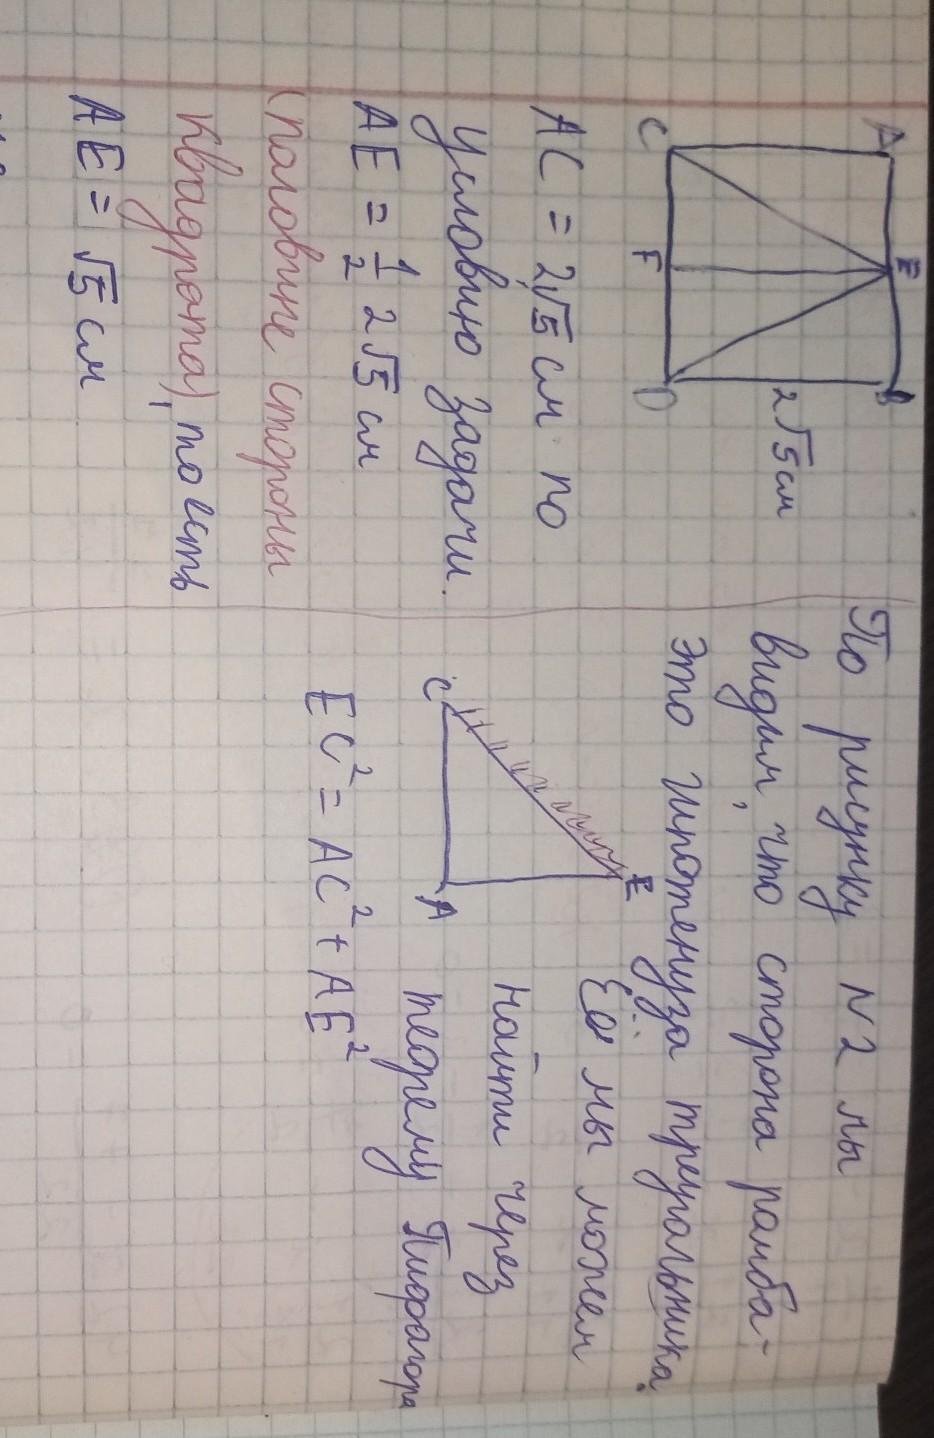 A E B
2√5 см
C F D
AC = 2√5 см по
условию задачи.
AE = 1/2 2√5 см
(половине стороны
квадрата), то есть
AE = √5 см
По рисунку N2 мы
видим, что сторона ромба-
это гипотенуза треугальника.
Её мы можем
найти через
теорему Пифагора
E
C A
EC² = AC² + AE²